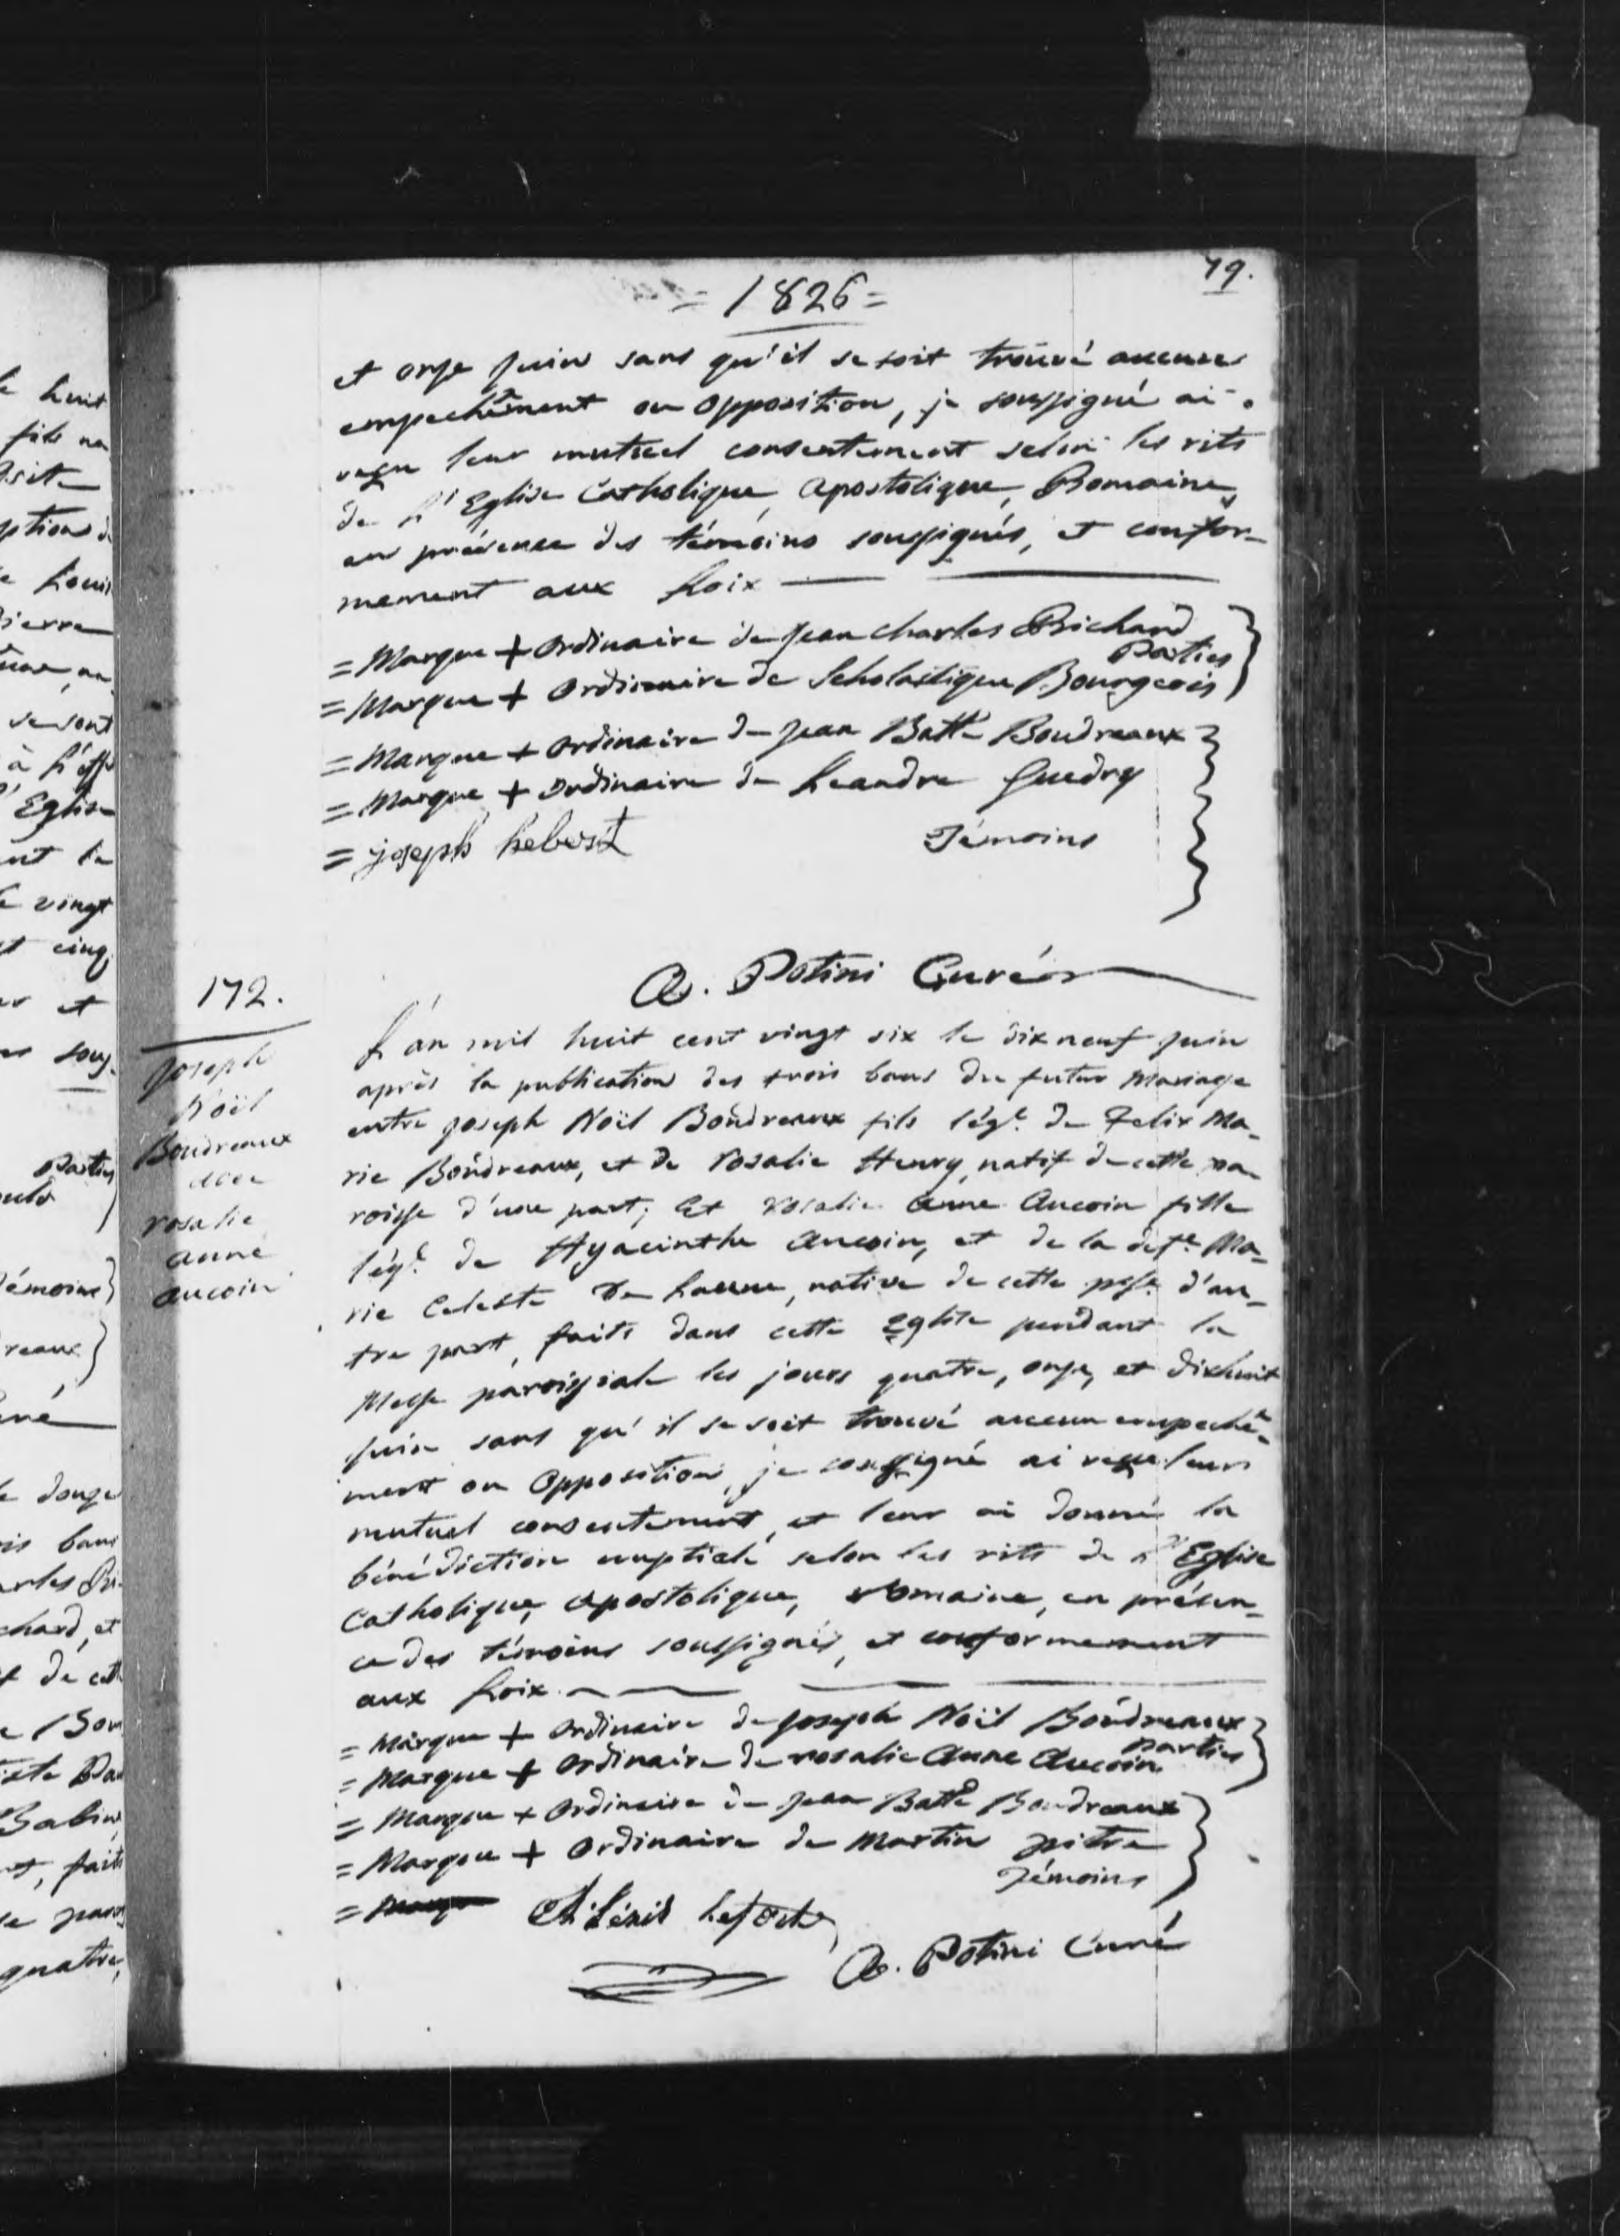 79.
= 1826 =
et onze juin sans qu'il se soit trouvé aucun
empechement ou opposition, je soussigné ai
reçu leur mutuel consentement selon les rits
de L'Eglise Catholique, Apostolique, Romaine,
en présence des témoins soussignés, et confor-
mement aux Loix
= Marque + Ordinaire de Jean Charles Richard
Parties
= Marque + Ordinaire de Scholastique Bourgeois
= Marque + Ordinaire de Jean Batte Boudreaux
= Marque + Ordinaire de Leandre Guedry
= joseph hebert Témoins
A. Potini Curé
172.
Joseph
Noël
Boudreaux
avec
rosalie
anne
aucoin
L'an mil huit cent vingt six le dix neuf juin
après la publication des trois bans du futur mariage
entre joseph Noël Boudreaux fils lége. de Felix Ma-
rie Boudreaux, et de rosalie Henry, natif de cette pa-
roisse d'une part; et rosalie anne Aucoin fille
lége. de Hyacinthe aucoin, et de la defte. Ma-
rie Celeste De Laune, native de cette psse. d'au-
tre part, faits dans cette Eglise pendant la
Messe paroissiale les jours quatre, onze, et dixhuit
juin sans qu'il se soit trouvé aucun empeche-
ment ou opposition, je soussigné ai reçu leur
mutuel consentement, et leur ai donné la
bénédiction nuptiale selon les rits de L'Eglise
Catholique, apostolique, romaine, en présen-
ce des témoins soussignés, et conformement
aux Loix
= Marque + Ordinaire de joseph Noël Boudreaux
parties
= Marque + Ordinaire de rosalie Anne Aucoin
= Marque + Ordinaire de Jean Batte Boudreaux
= Marque + Ordinaire de Martin pitre
Témoins
= Marque Alexis Leforte
A. Potini Curé